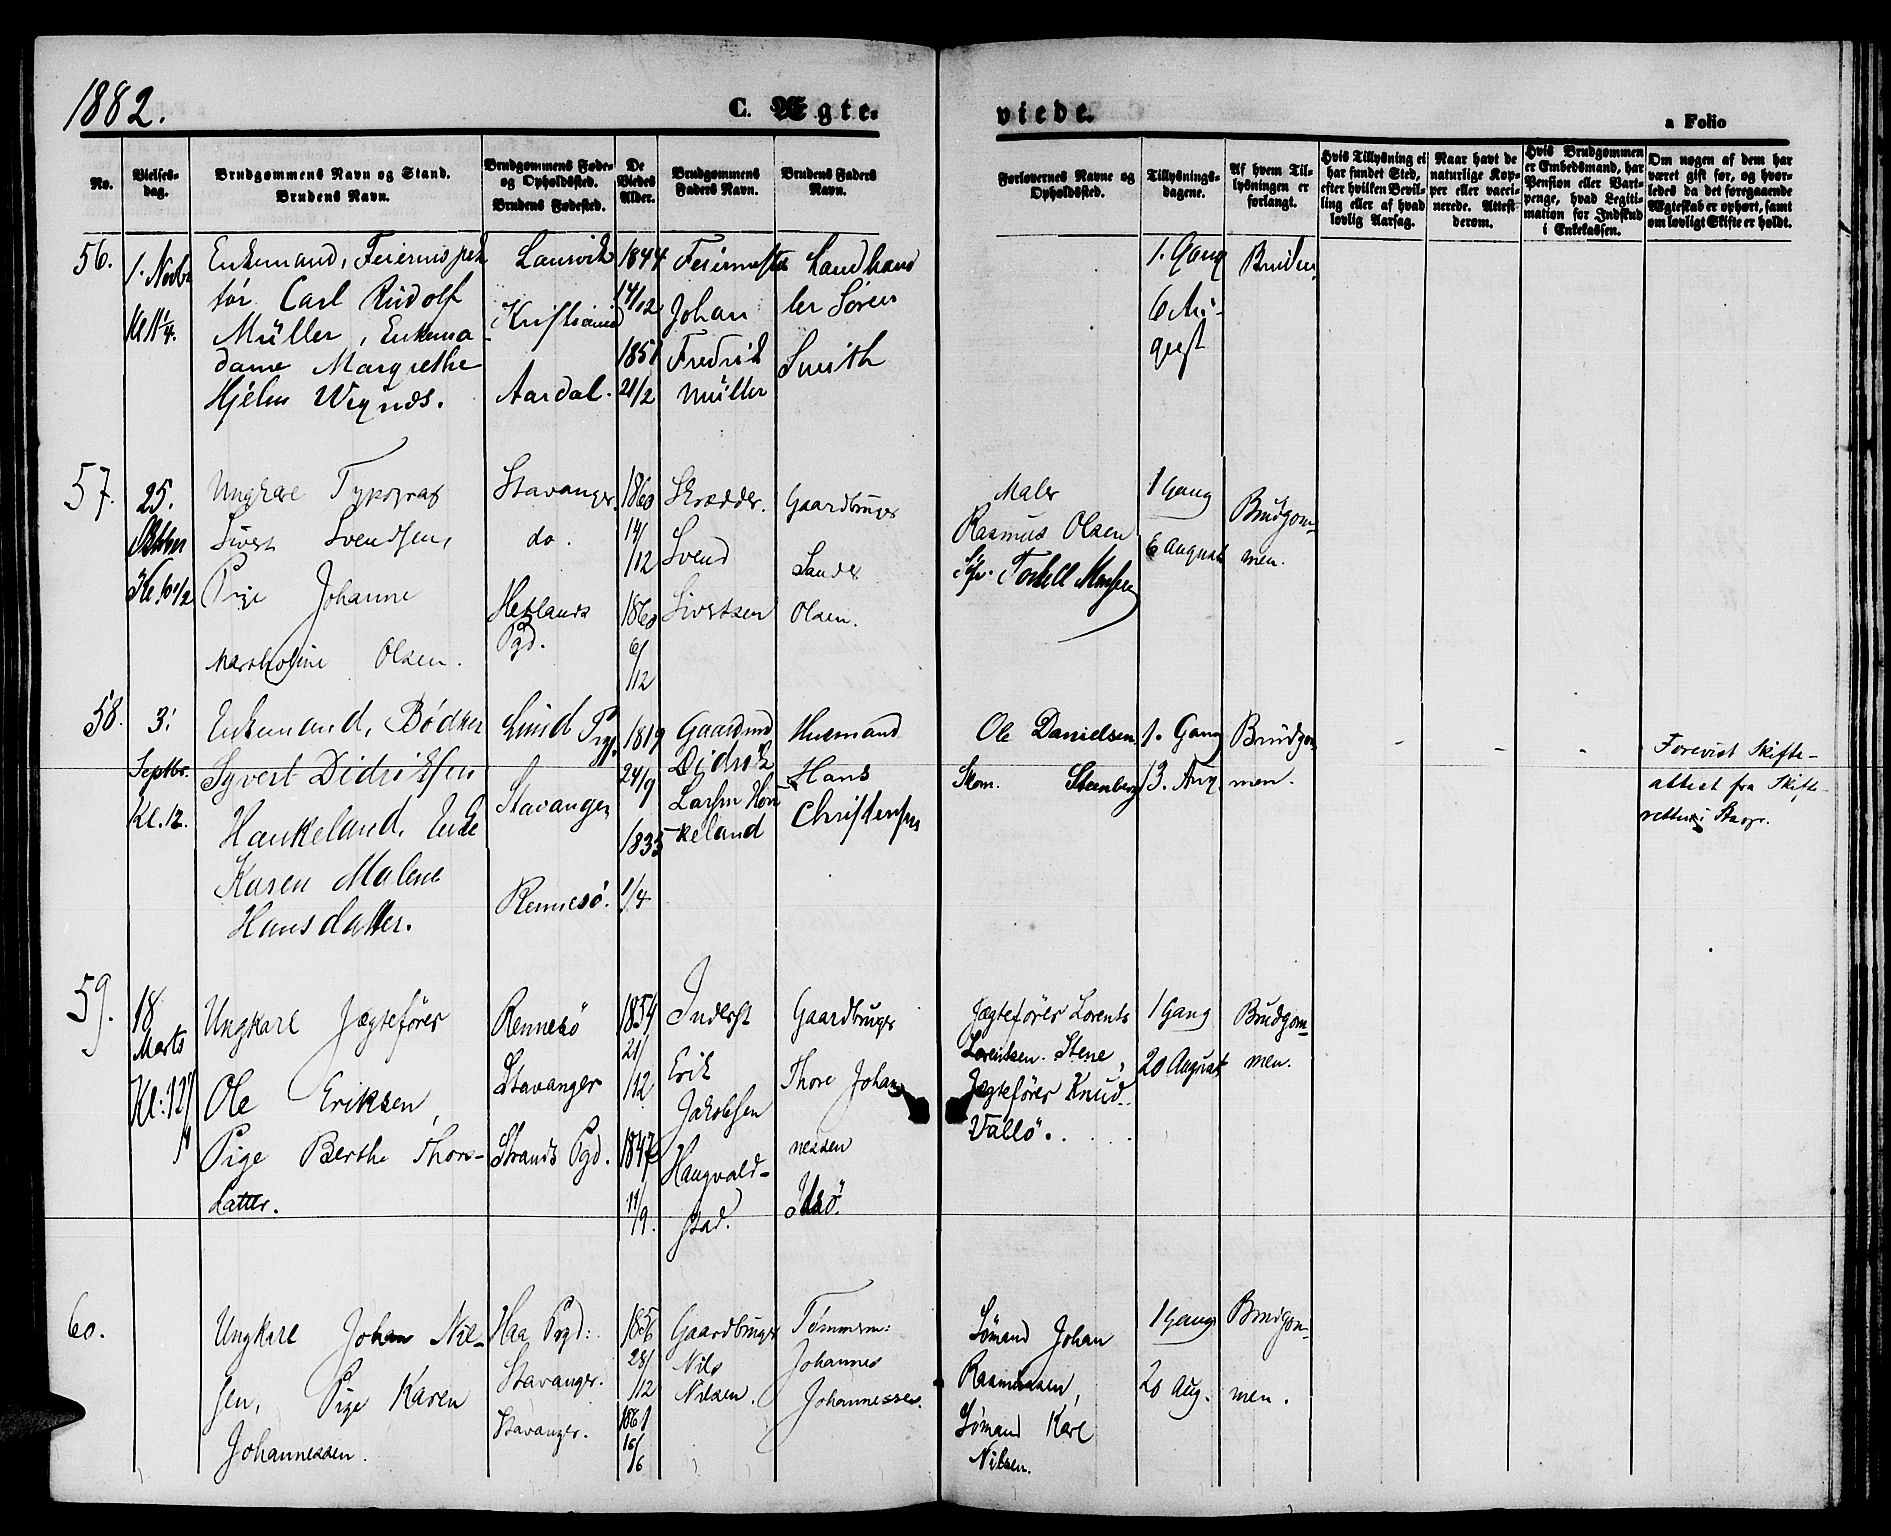 1882.
C. Ægte-
viede.
a Folio
No.
Vielses-
dag.
Brudgommens Navn og Stand.
Brudens Navn.
Brudgommens Føde-
og Opholdssted.
Brudens Fødested.
De
Viedes
Alder.
Brudgommens
Faders Navn.
Brudens Faders
Navn.
Forlovernes Navne og
Opholdssted.
Tillysnings-
dagene.
Af hvem Til-
lysningen er
forlangt.
Hvis Tillysning ei
har fundet Sted,
efter hvilken Bevil-
ling eller af hvad
lovlig Aarsag.
Naar havt de
naturlige Kop-
per eller vacci-
nerede. Attest
derom.
Hvis Brudgommen
er Embedsmand, har
Pension eller Vart-
penge, hvad Legiti-
mation for Indskud
i Enkekassen.
Om nogen af dem har
været gift før, og hvor-
ledes da det foregaaende
Ægteskab er ophørt, samt
om lovligt Skifte er holdt.
56.
1. Novbr
Kl. 11 1/4.
Enkemand, Feierinspek
tør Carl Rudolf
Müller, Enkema
dame Margrethe
Hjelm Wignæs.
Laurvik
Kristiansand
Aardal.
1844
14/12
1851
21/2
Feiermester
Johan
Fredrik
Müller
Landhand
ler Sören
Smith
1. Gang
6 Au-
gust
Bruden
57.
25.
Oktober
Kl. 10 1/2
Ungkarl Typograf
Sivert Svendsen,
Pige Johanne
Olsen.
Stavanger.
do.
Hetlands
Pgd.
1860
14/
/12
1860
6/
/12
Skrædder.
Svend
Sivertsen
Gaardbruger
Sander
Olsen.
Maler
Rasmus Olsen
1 Gang
6 August
Brudgom-
men.
58.
3.
Septbr.
Kl. 12.
Enkemand, Bödker
Syvert Didriksen
Haukeland, Enke
Karen Malene
Hansdatter.
Lund Prgj.
Stavanger
Rennesö.
1819
24/9
1835
1/4
Gaardmd
Didrik
Larsen Hau
keland
Husmand
Hans
Christensen
Ole Danielsen
Skom. Steenberg
1. Gang
13. Aug.
Brudgom
men.
Forevist Skifte-
attest fra Skifte-
retten i Stavgr.
59.
18
Marts
Kl: 12 1/
4
Ungkarl Jægtefører
Ole Eriksen,
Pige Berthe Thors-
datter.
Rennesö
Stavanger
Strands Pgd.
1854
21/
/12
1847
11/
/9.
Inderst
Erik
Jakobsen
Haugvald-
stad.
Gaardbruger
Thore Johan
nessen
Idsö.
Jægtefører Lorents
Lorentsen Stene,
Jægtefører Knud
Vallö.
1 Gang
20 August
Brudgom-
men.
60.
Ungkarl Johan Nil-
sen, Pige Karen
Johannessen.
Haa Prgd:
Stavanger.
Stavanger.
1856
28/
/12
1861
16/
/6
Gaardbruger
Nils
Nilsen.
Tømmerm:
Johannes
Johannessen.
Sømand Johan
Rasmussen,
Sømand Karl
Nilsen.
1 Gang
20 Aug.
Brudgom-
men.